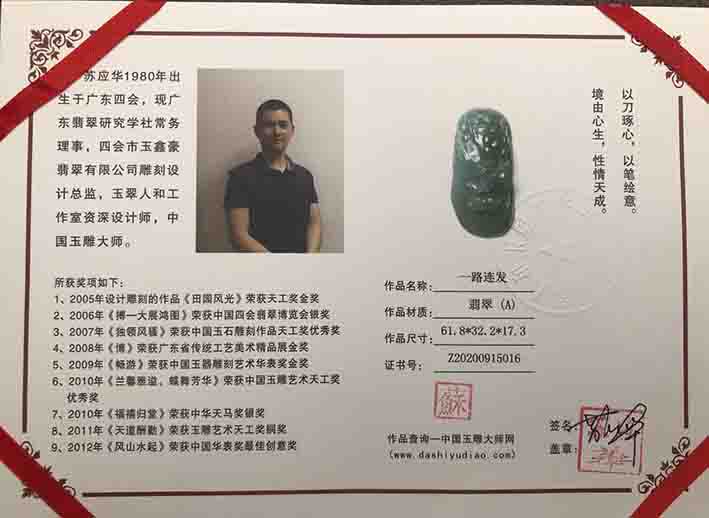 苏应华1980年出
生于广东四会，现广
东翡翠研究学社常务
理事，四会市玉鑫豪
翡翠有限公司雕刻设
计总监，玉翠人和工
作室资深设计师，中
国玉雕大师。
以刀琢心，以笔绘意。
境由心生，性情天成。
所获奖项如下：
1、2005年设计雕刻的作品《田园风光》荣获天工奖金奖
2、2006年《搏一大展鸿图》荣获中国四会翡翠博览会银奖
3、2007年《独领风骚》荣获中国玉石雕刻作品天工奖优秀奖
4、2008年《博》荣获广东省传统工艺美术精品展金奖
5、2009年《畅游》荣获中国玉器雕刻艺术华表奖金奖
6、2010年《兰馨恩溢，蝶舞芳华》荣获中国玉雕艺术天工奖
优秀奖
7、2010年《福禧归堂》荣获中华天马奖银奖
8、2011年《天道酬勤》荣获玉雕艺术天工奖铜奖
9、2012年《风山水起》荣获中国华表奖最佳创意奖
作品名称：一路连发
作品材质：翡翠（A）
作品尺寸：61.8*32.2*17.3
证书号：Z20200915016
蘇
作品查询一中国玉雕大师网
(www.dashiyudiao.com)
签名
盖章：